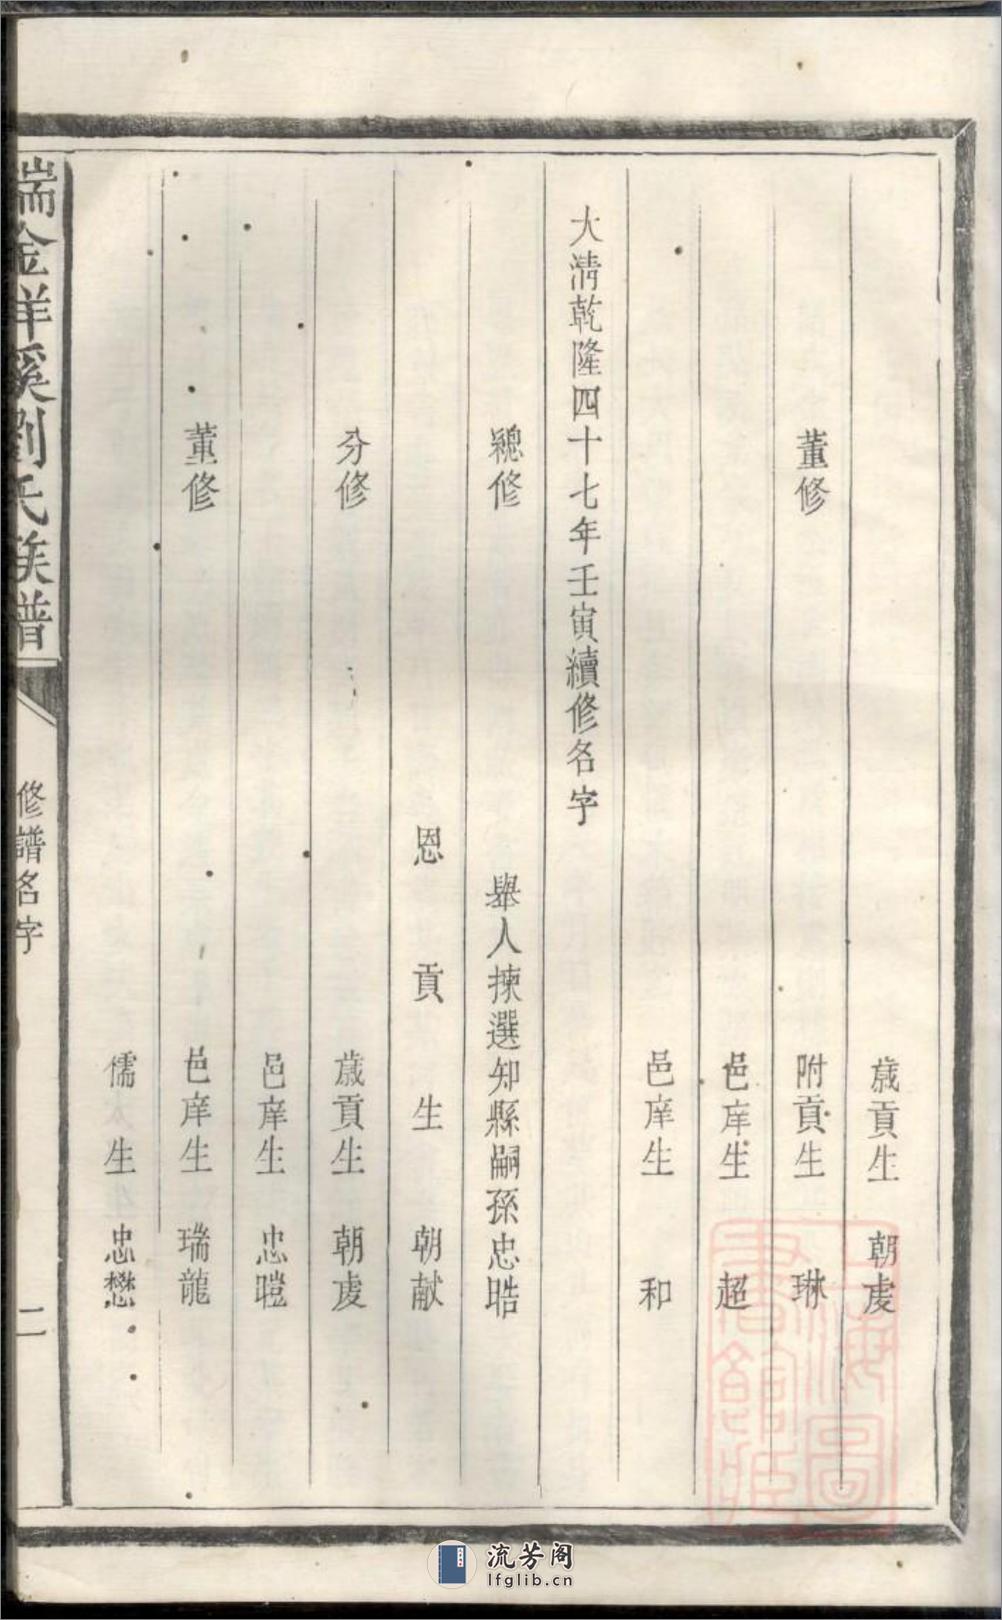 歲貢生 朝虔
董修 附貢生 琳
邑庠生 超
邑庠生 和
大清乾隆四十七年壬寅續修名字
總修 舉人揀選知縣嗣孫忠晧
恩貢生 朝献
分修 歲貢生 朝虔
邑庠生 忠暟
董修 邑庠生 瑞龍
儒生 忠懋
瑞金洋溪劉氏族譜
修譜名字
二
上海圖書館藏
流芳阁
lfglib.cn